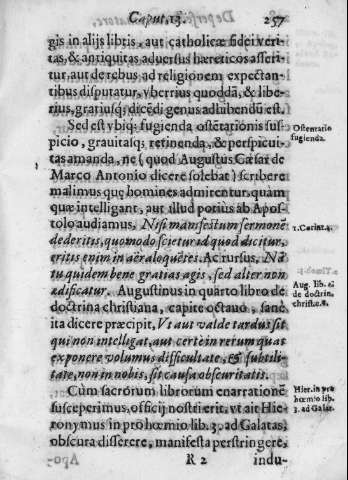 Caput. 13. 257
gis in alijs libris, aut catholicæ fidei veri
tas, & antiquitas aduersus hæreticos asseri
tur, aut de rebus ad religionem expectan
tibus disputatur, vberrius quoddã, & libe-
rius, gratiusq; dicẽdi genus adhibendũ est.
Sed est vbiq; fugienda ostẽtationis sus
picio, grauitasq; retinenda, & perspicui
tas amanda, ne (quod Augustus Cæsar de
Marco Antonio dicere solebat) scribere
malimus quę homines admirentur, quàm
quæ intelligant, aut illud potius ab Apos
tolo audiamus. Nisi manifestum sermonẽ
dederitis, quomodo scietur id quod dicitur,
eritis enim in aëra loquẽtes. Ac rursus, Nã
tu quidem bene gratias agis, sed alter non
ædificatur. Augustinus in quarto libro de
doctrina christiana, capite octauo, sanè
ita dicere præcipit, Vt aut valde tardus sit
qui non intelligat, aut certe in rerum quas
exponere volumus difficultate, & subtili-
tate, non in nobis, sit causa obscuritatis.
Cùm sacrorum librorum enarrationẽ
susceperimus, officij nostri erit, vt ait Hie-
ronymus in prohœmio lib. 3. ad Galatas,
obscura disserere, manifesta perstringere,
R 2 indu-
Ostentatio
fugienda.
1. Corint. 4.
Aug. lib. 4
de doctrin.
christ. c. 8.
Hier. in pro
hœmio lib.
3. ad Galat.